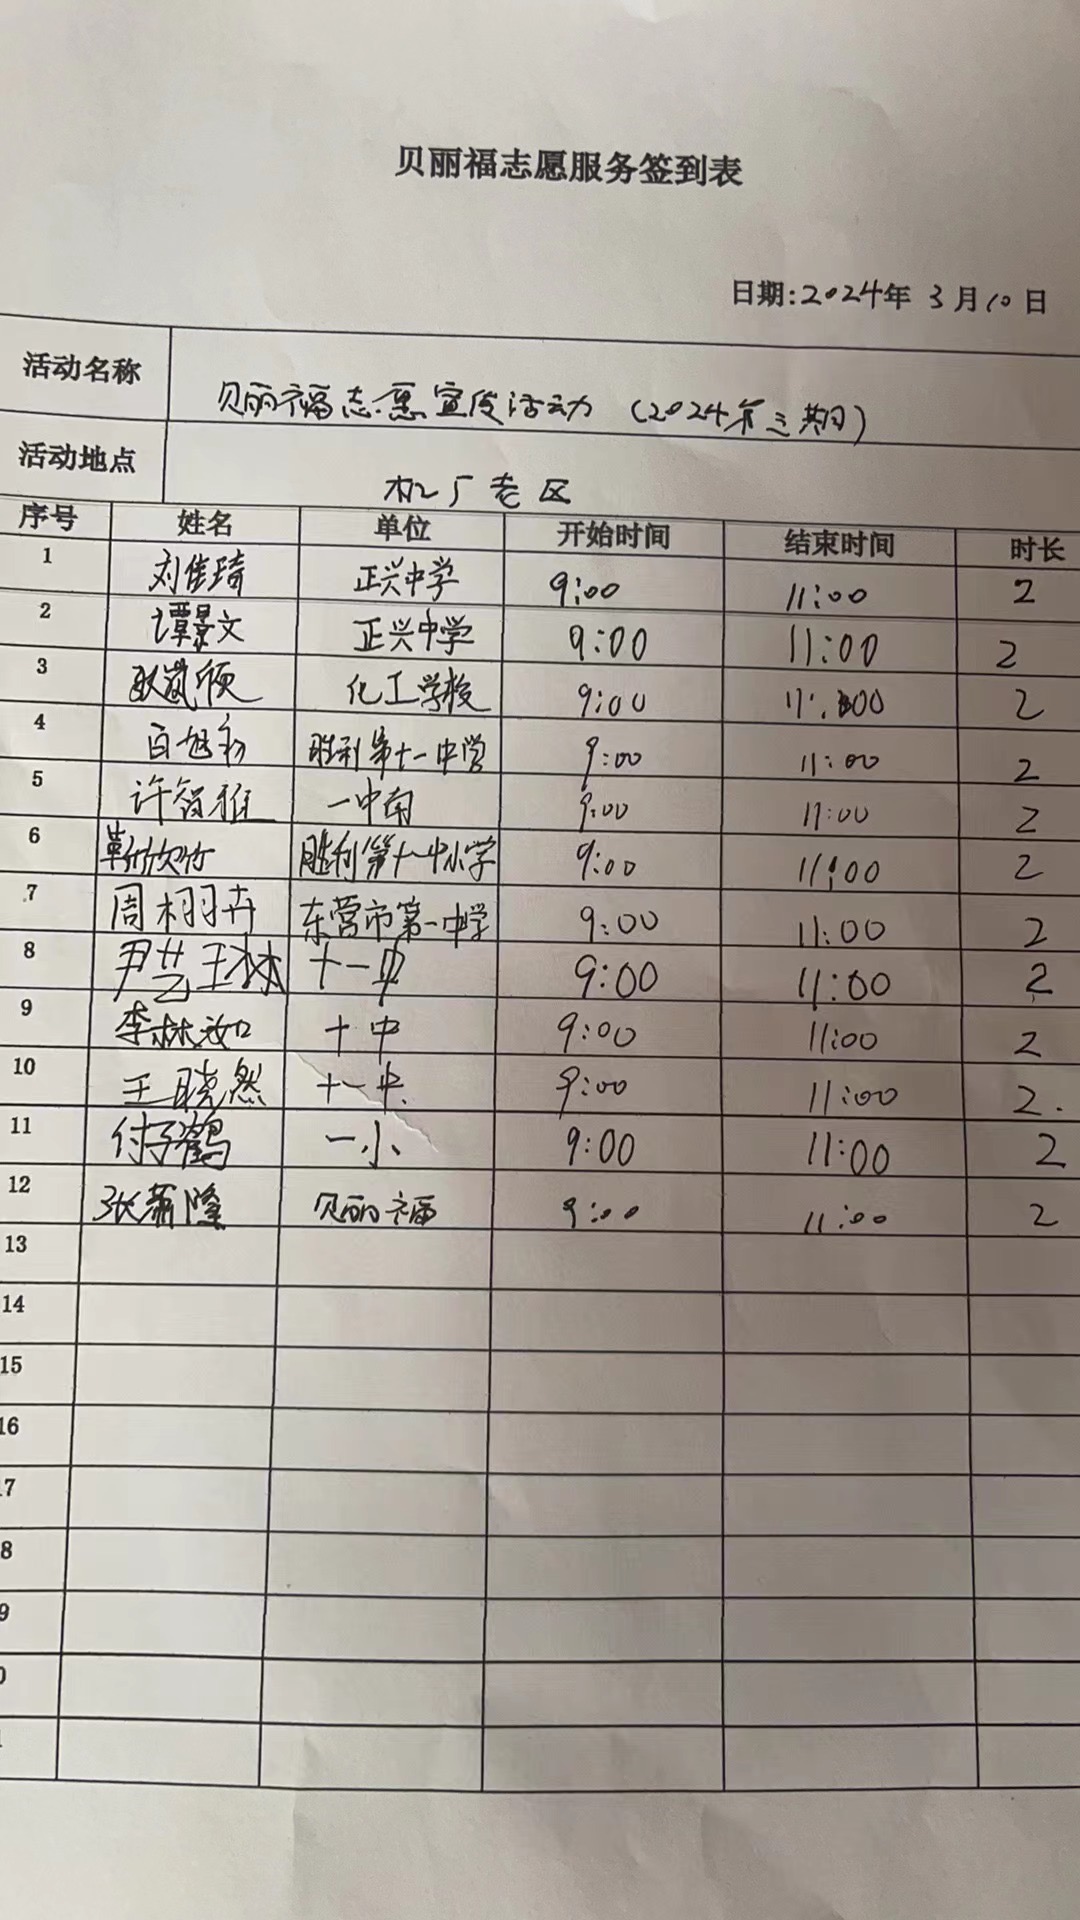 贝丽福志愿服务签到表
日期:2024年 3月10日
活动名称 贝丽福志愿宣传活动（2024第三期）
活动地点 机厂老区
序号 姓名 单位 开始时间 结束时间 时长
1 刘佳琦 正兴中学 9:00 11:00 2
2 谭景文 正兴中学 9:00 11:00 2
3 化工学校 9:00 11:00 2
4 白旭初 胜利第十一中学 9:00 11:00 2
5 许智雅 一中南 9:00 11:00 2
6 胜利第十一中小学 9:00 11:00 2
7 周栩卉 东营市第一中学 9:00 11:00 2
8 尹艺琳 十一中 9:00 11:00 2
9 李林汝 十中 9:00 11:00 2
10 王晓然 十一中. 9:00 11:00 2.
11 付子鹤 一小 9:00 11:00 2
12 张萧隆 贝丽福 9:00 11:00 2
13
14
15
16
7
8
9